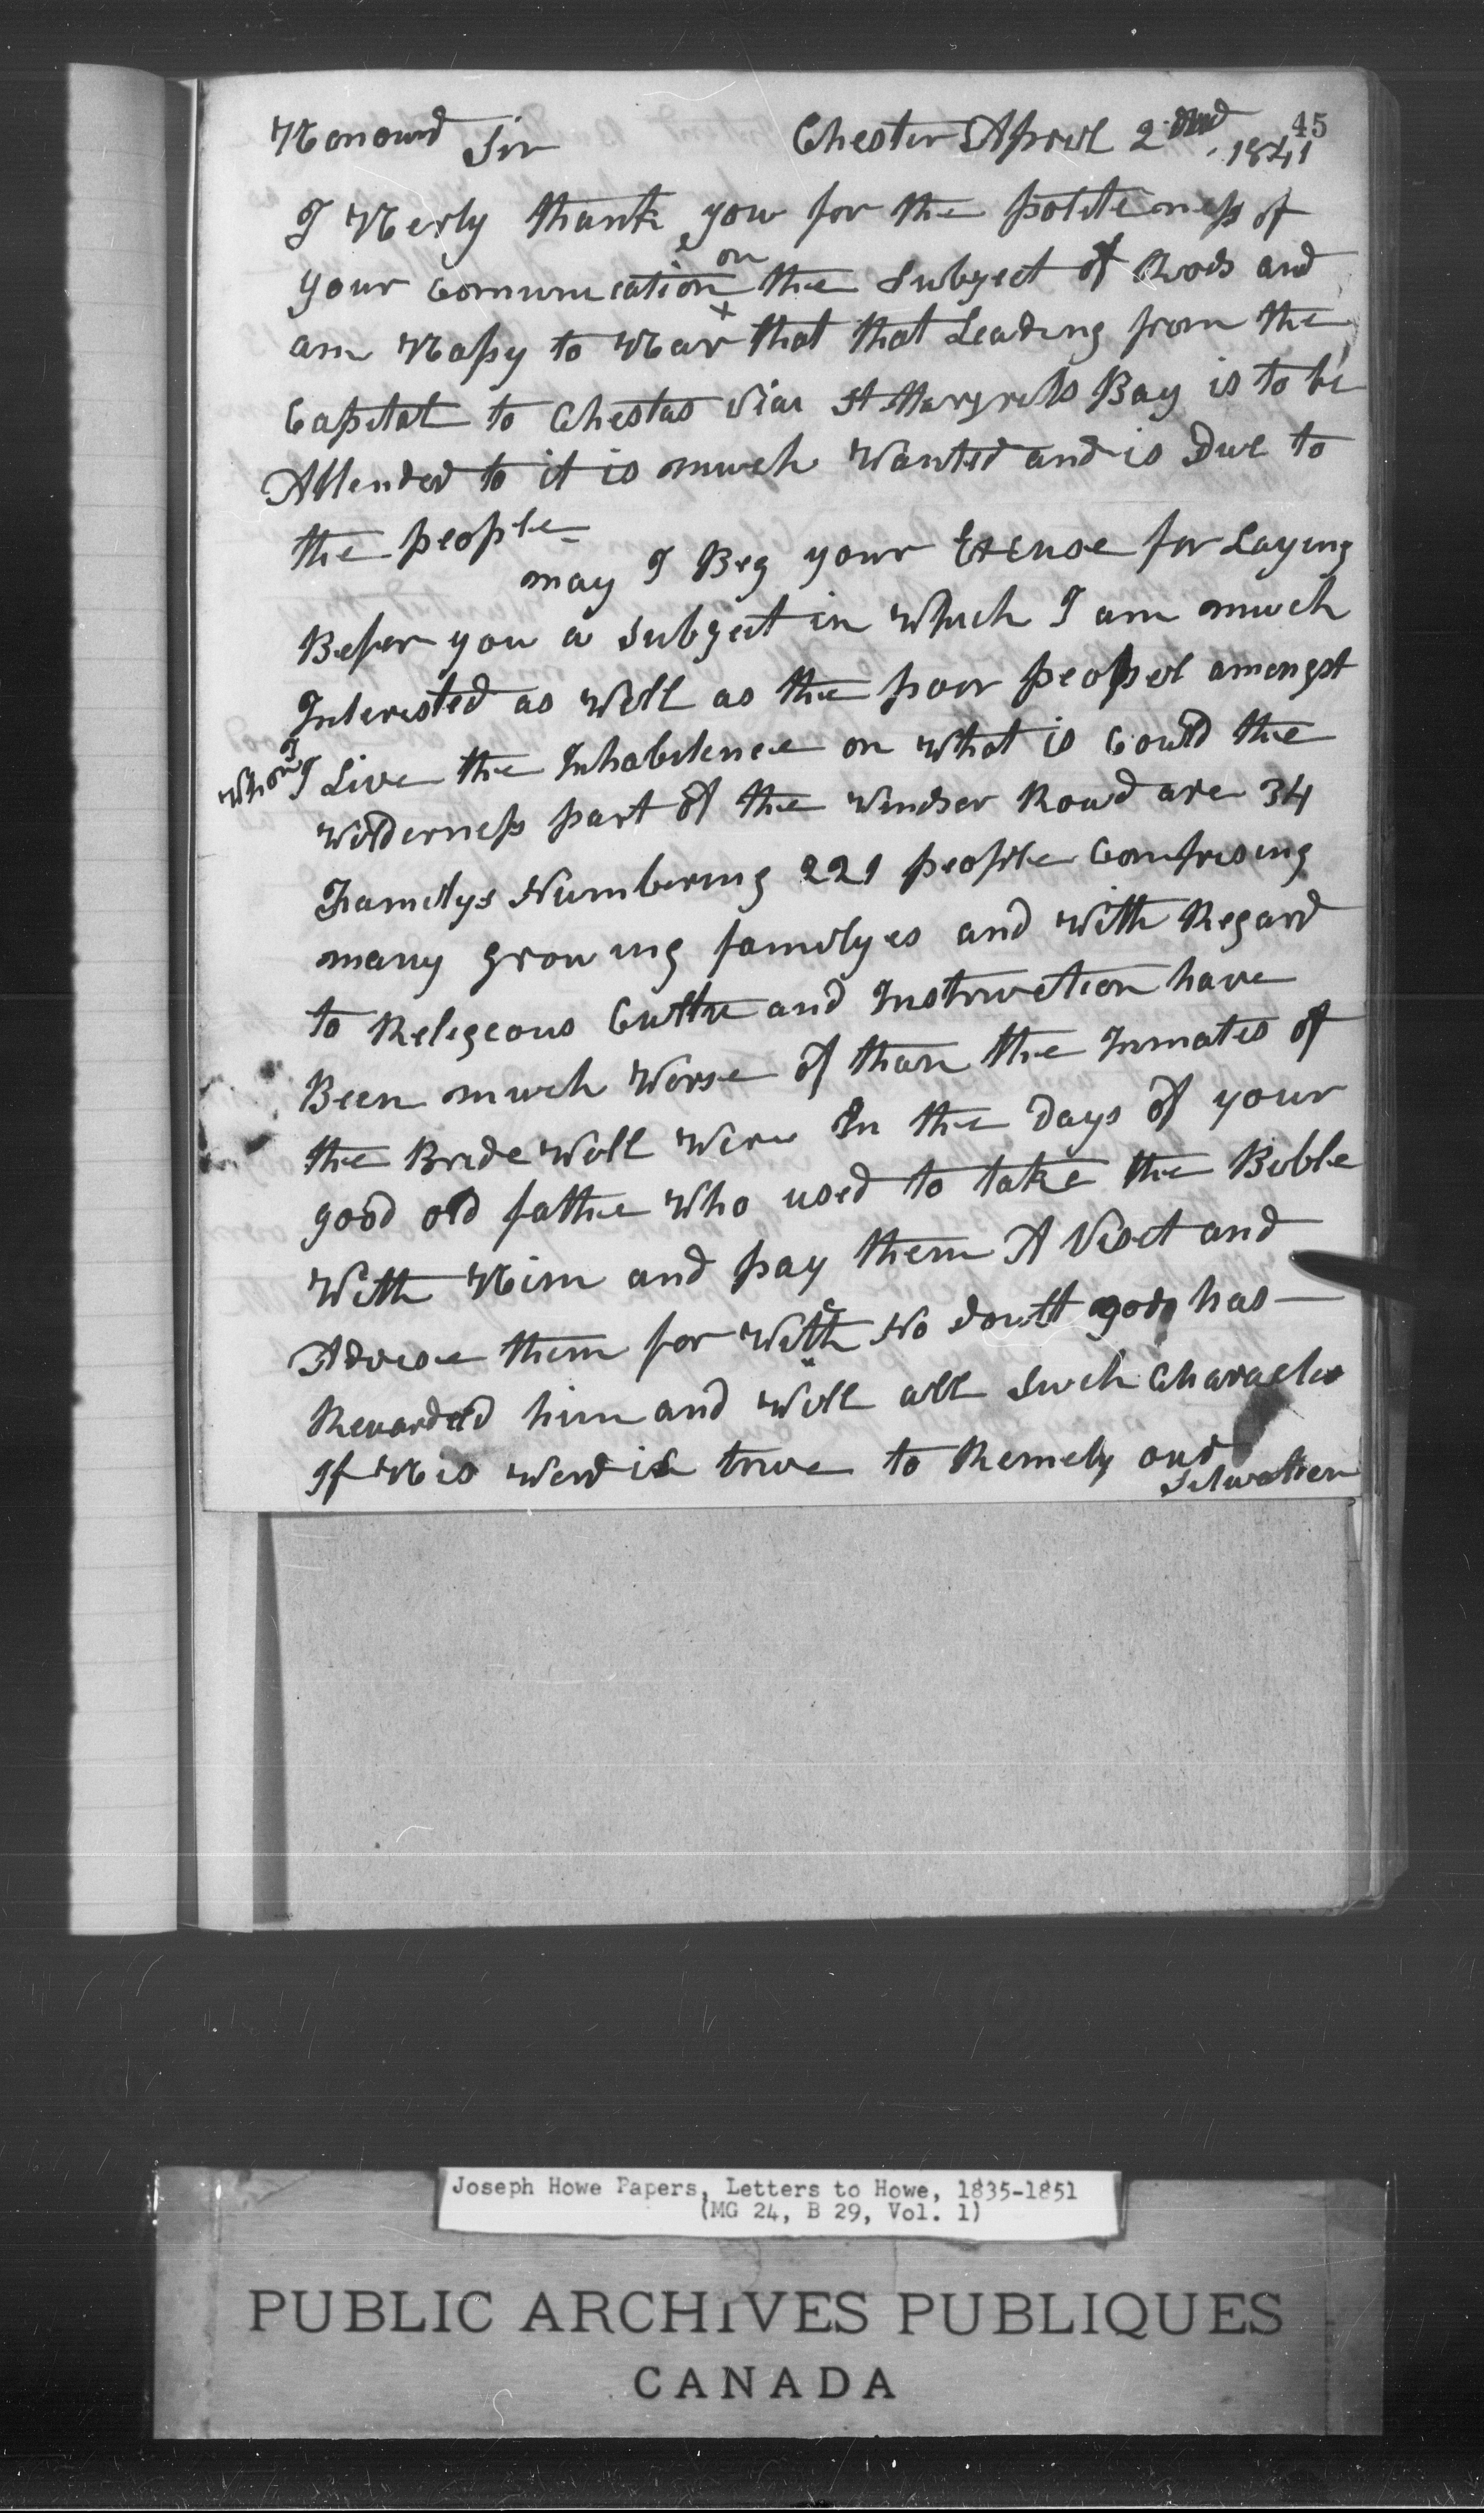 45
Honourd Sir Chester Aprel 2 ond 1841
I Herly thank you for the politeness of
your Comunication on the Subject of Rods and
am Hapy to Har that that Leading from the
Capital to Chestar Viar St Margrets Bay is to be
Attended to it is much Wanted and is Due to
the people
may I Beg your Excuse for Laying
Befor you a Subject in Which I am much
Interested as Well as the poor peopel amongst
Whom I Live the Inhabitence on What is Could the
Wilderness part of the Windser Road are 34
Familys Numbering 221 people Comprising
many growing familyes and With Regard
to Religeous Cultre and Instruction have
Been much Worse of than the Inmates of
the Bride Well Were In the Days of your
good old father Who used to take the Bible
With Him and pay them A Viset and
Advise them for Witch No doutt god has
Rewarded him and Will all Such Characters
If His Word is true to Remedy our
Setuation
Joseph Howe Papers, Letters to Howe, 1835-1851
(MG 24, B 29, Vol. 1)
PUBLIC ARCHIVES PUBLIQUES
CANADA